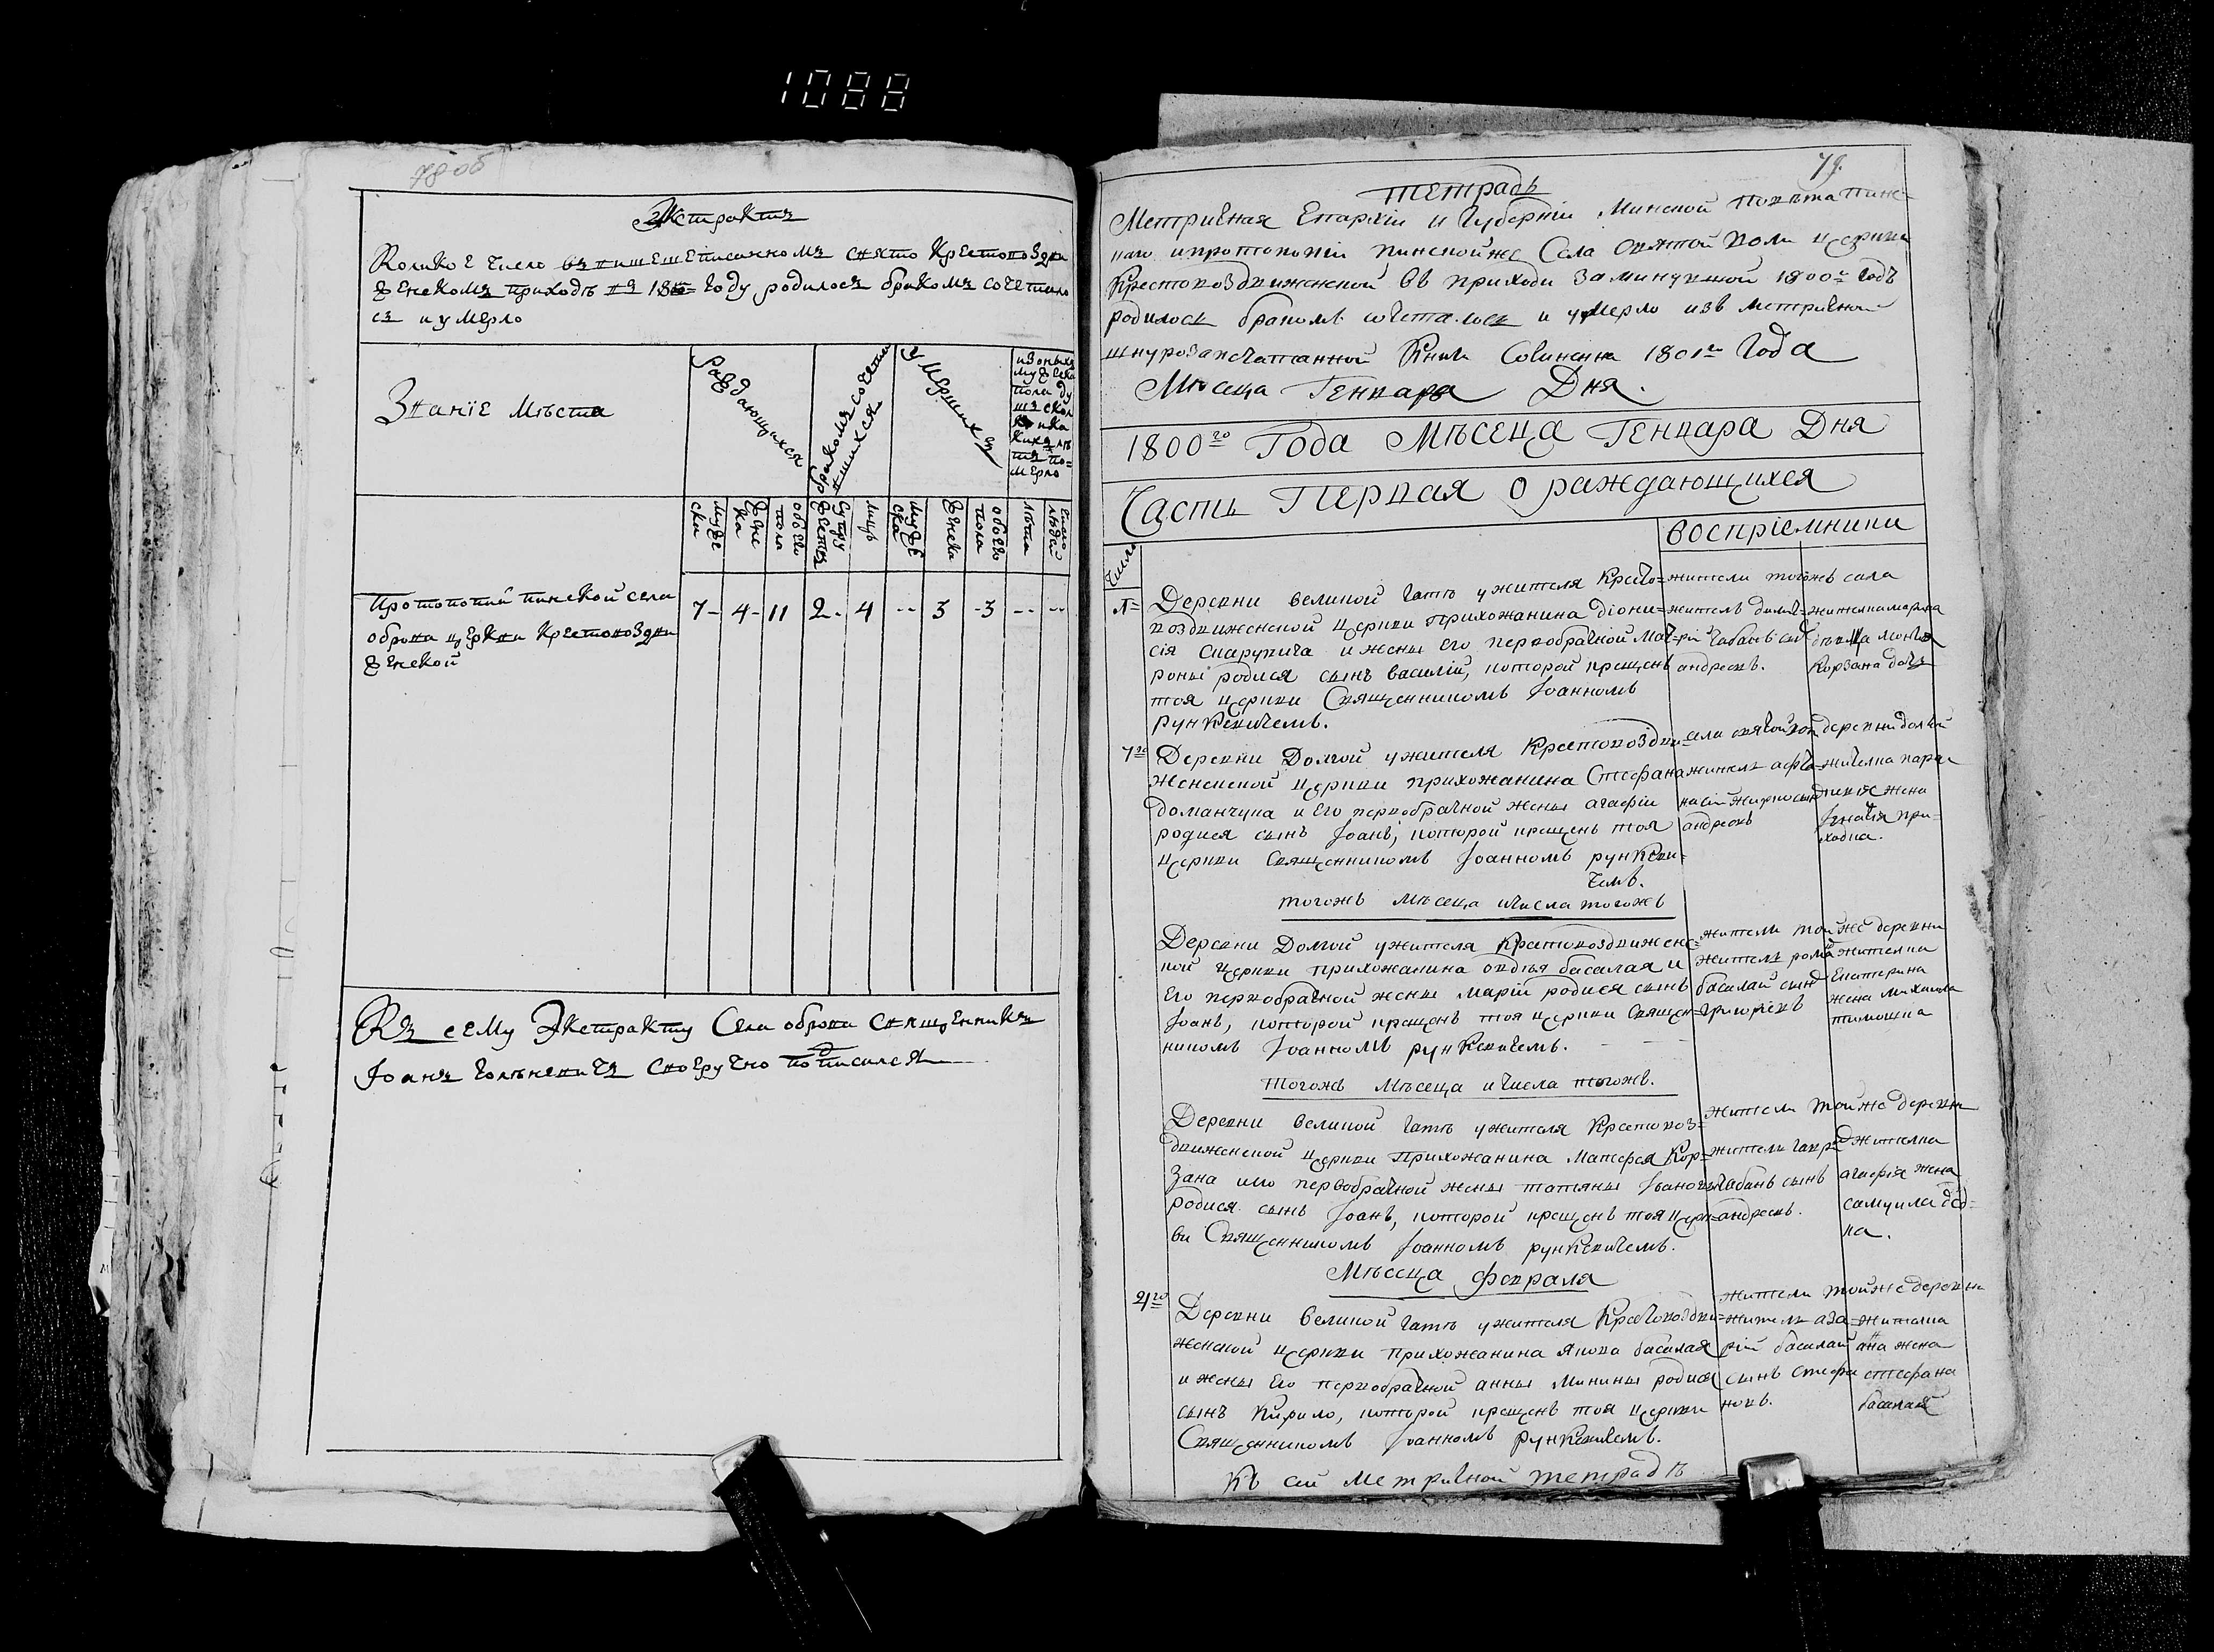 1088
78 об
Экстрактъ
Колико е число въ вишеписанномъ свято Крестовоздви
женскомъ приходѣ въ 1800 году родилося бракомъ сочетало
съ и умерло
Званіе мѣста
Раждающихся
бракомъ сочета
вшихся
Умершихъ
мужес
ска
жене
ка
обоего
пола
супру
жествъ
лицъ
мужес
ска
женска
обоего
пола
лѣта
число
людей
Протопопіи пинской села
оброва церкви Крестовоздви
женской
7 - 4 - 11 2 - 4 -- 3 - 3 -- --
Къ сему Экстракту Села оброва священникъ
Іоанъ своеручно подписался
79.
Тетрадь
Метричная Епархіи и Губерніи Минской повѣта пинс
каго и протопопіи пинской же Села святой воли церкви
Крестовоздвиженской въ приходи за минувшой 1800го годъ
родилося бракомъ сочеталося и умерло изъ метричной
шнурозапечатанной Книги Сочиненна 1801го Года
Мѣсеца Генвара Дня.
1800го Года Мѣсеца Генвара Дня
Часть Первая о раждающихся
Число
воспріемники
Деревни великой гать ужителя Кресто=
воздвиженской церкви прихожанина діони=
сія Скарупича и жены его первобрачной мат
роны родися сынъ василій, которой крещенъ
тоя церкви Священникомъ Іоанномъ
рункевичемъ.
жители тогожъ села
житель дими=
трій чабанъ сынъ
андреевъ.
жителка марина
Корзана дочъ
7го
Деревни Долгой ужителя Крестовоздви=
женской церкви прихожанина Стефана
доманчука и Его первобрачной жены агафіи
родися сынъ Іоанъ, которой крещенъ тоя
церкви Священникомъ Іоанномъ рункеви=
чемъ.
андреевъ
деревни долгой
жителка парас
кевія жена
Ігнатія при=
ходка.
тогожъ мѣсеца ичисла тогожъ
Деревни Долгой ужителя Крестовоздвиженс=
кой церкви прихожанина овдѣя басалая и
Его первобрачной жены маріи родися сынъ
Іоанъ, которой крещенъ тоя церкви Священ=
никомъ Іоанномъ рункевичемъ.
жители тойже деревни
житель рома
басалай сынъ
григоріевъ
жителка
Екатерина
жена михаила
тимошка
Тогожъ мѣсеца ичисла тогожъ.
Деревни великой гать ужителя Крестовоз=
движенской церкви Прихожанина Матфея Кор=
зана иго первобрачной жены татяны Івановы
родися сынъ Іоанъ, которой крещенъ тоя церк=
ви Священникомъ Іоанномъ рункевичемъ.
жители тойже деревни
житель гаври
чабанъ сынъ
андреевъ.
жителка
агафія жена
самуила дѣд=
ка.
Мѣсеца февраля
21го
Деревни великой гать ужителя Крестовоздви=
женской церкви прихожанина якова басалая
и жены Его первобрачной анны Минины родися
сынъ Кирило, которой крещенъ тоя церкви
Священникомъ Іоанномъ рункевичемъ.
жители тойже деревни
житель аза=
рій басалай
сынъ стефа
новъ.
жителка
анна жена
стефана
басалая
къ сей метричной тетрадѣ